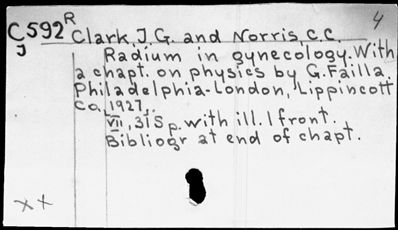 4
C592R Clark, J.G. and Norris C.C.
J
Radium in gynecology. With
a chapt. on physics by G. Failla.
Philadelphia-London, Lippincott
Co., 1927.
VII, 315 p. with ill. 1 front.
Bibliogr at end of chapt.
xx